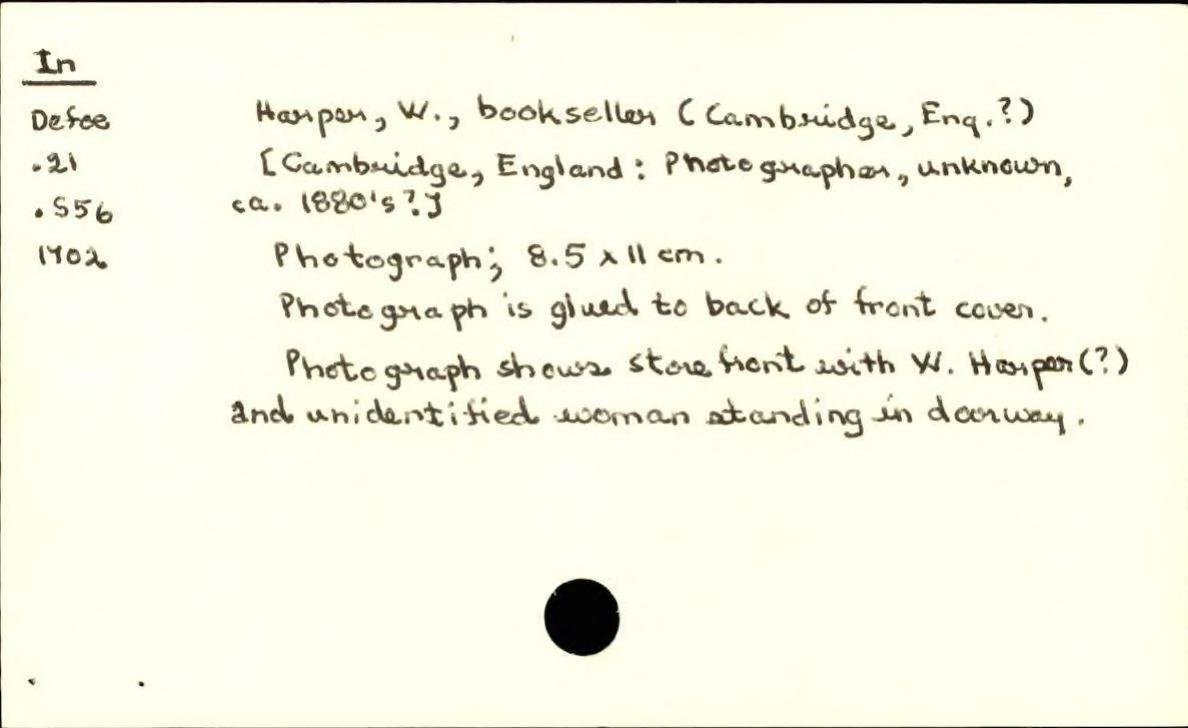 In
Defoe
.21
.S56
1702
Harper, W., bookseller (Cambridge, Eng.?)
[Cambridge, England: Photographer, unknown,
ca. 1880's?]
Photograph; 8.5 x 11 cm.
Photograph is glued to back of front cover.
Photograph shows store front with W. Harper(?)
and unidentified woman standing in doorway.